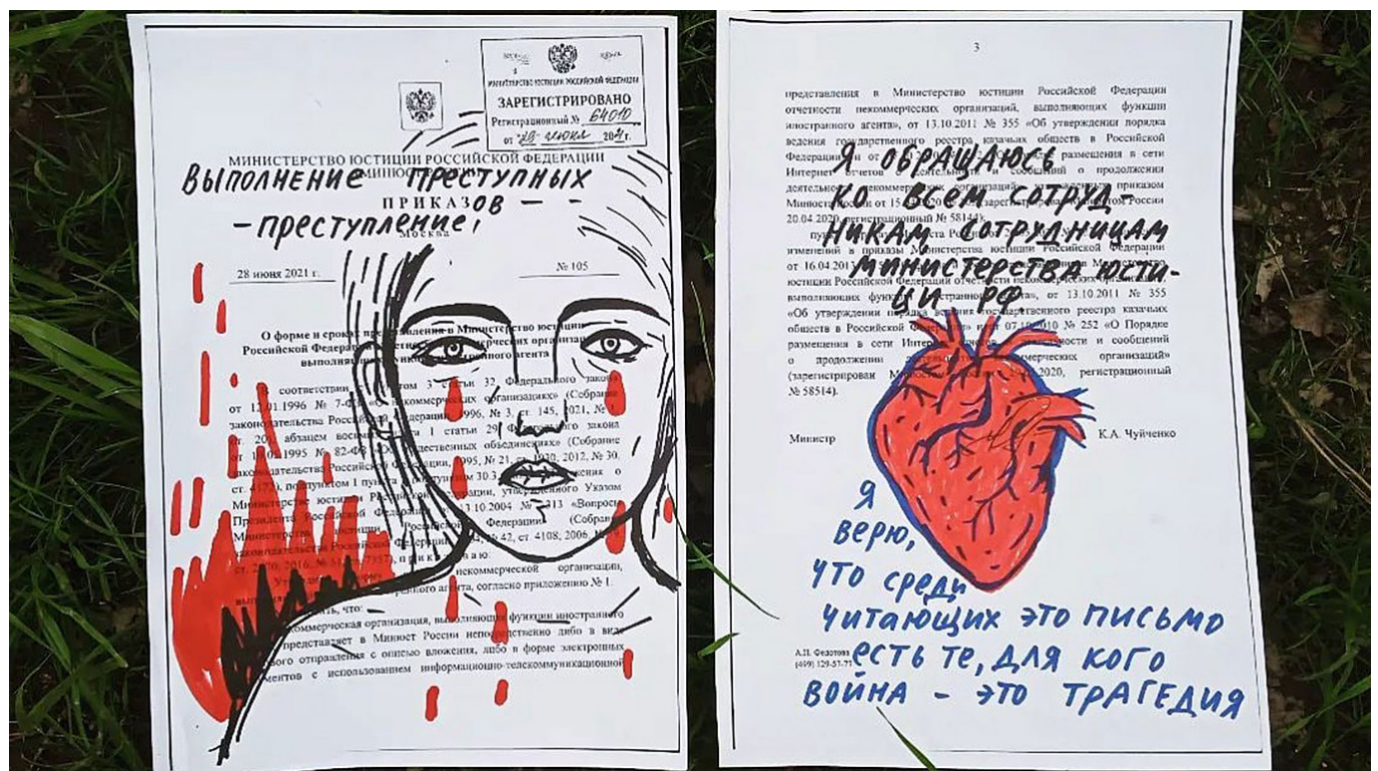 МИНИСТЕРСТВО ЮСТИЦИИ РОССИЙСКОЙ ФЕДЕРАЦИИ
ЗАРЕГИСТРИРОВАНО
Регистрационный № 64010
от "29" июня 2021 г.
МИНИСТЕРСТВО ЮСТИЦИИ РОССИЙСКОЙ ФЕДЕРАЦИИ
ВЫПОЛНЕНИЕ ПРЕСТУПНЫХ
ПРИКАЗОВ —
— ПРЕСТУПЛЕНИЕ,
Москва
28 июня 2021 г. № 105
О форме и сроках представления в Министерство юстиции
Российской Федерации
соответствии 3 статьи 32 Федерального закона
от 12.01.1996 № 7-ФЗ некоммерческих организациях» (Собрание
законодательства Российской Федерации, 1996, № 3, ст. 145, 2021, №
абзацем 1 статьи 29 Федерального закона
от 19.05.1995 № 82-ФЗ общественных объединениях» (Собрание
законодательства Российской Федерации, 1995, № 21, ст. 1930, 2012, № 30,
ст. 4172), подпунктом 1 пункта 30.3
Министерстве юстиции Российской Федерации, утвержденного Указом
Президента Российской Федерации 13.10.2004 № 1313 «Вопросы
Министерства юстиции Российской Федерации» (Собрание
законодательства Российской Федерации, № 42, ст. 4108, 2006,
приказываю:
некоммерческой организации,
агента, согласно приложению № 1.
что:
некоммерческая организация, выполняющая функции иностранного
представляет в Минюст России непосредственно либо в виде
отправления с описью вложения, либо в форме электронных
с использованием информационно-телекоммуникационной
3
представления в Министерство юстиции Российской Федерации
отчетности некоммерческих организаций, выполняющих функции
иностранного агента», от 13.10.2011 № 355 «Об утверждении порядка
ведения государственного реестра казачьих обществ в Российской
Федерации» и от размещения в сети
Интернет отчетов деятельности и сообщений о продолжении
деятельности некоммерческих организаций» приказом
Минюста России от России
20.04.2020, регистрационный № 58144).
изменений в приказы Министерства юстиции Российской Федерации
от 16.04.2013
юстиции Российской Федерации отчетности некоммерческих
выполняющих функции иностранного агента», от 13.10.2011 № 355
«Об утверждении порядка ведения государственного реестра казачьих
обществ в Российской Федерации» и от 07.10.2010 № 252 «О Порядке
размещения в сети Интернет отчетов деятельности и сообщений
о продолжении деятельности некоммерческих организаций»
(зарегистрирован Минюстом 2020, регистрационный
№ 58514).
Я ОБРАЩАЮСЬ
КО ВСЕМ СОТРУД-
НИКАМ, СОТРУДНИЦАМ
МИНИСТЕРСТВА ЮСТИ-
ЦИ РФ
Министр К.А. Чуйченко
Я
ВЕРЮ,
ЧТО СРЕДИ
ЧИТАЮЩИХ ЭТО ПИСЬМО
А.П. Федотова
(499) 129-57-71
ЕСТЬ ТЕ, ДЛЯ КОГО
ВОЙНА – ЭТО ТРАГЕДИЯ